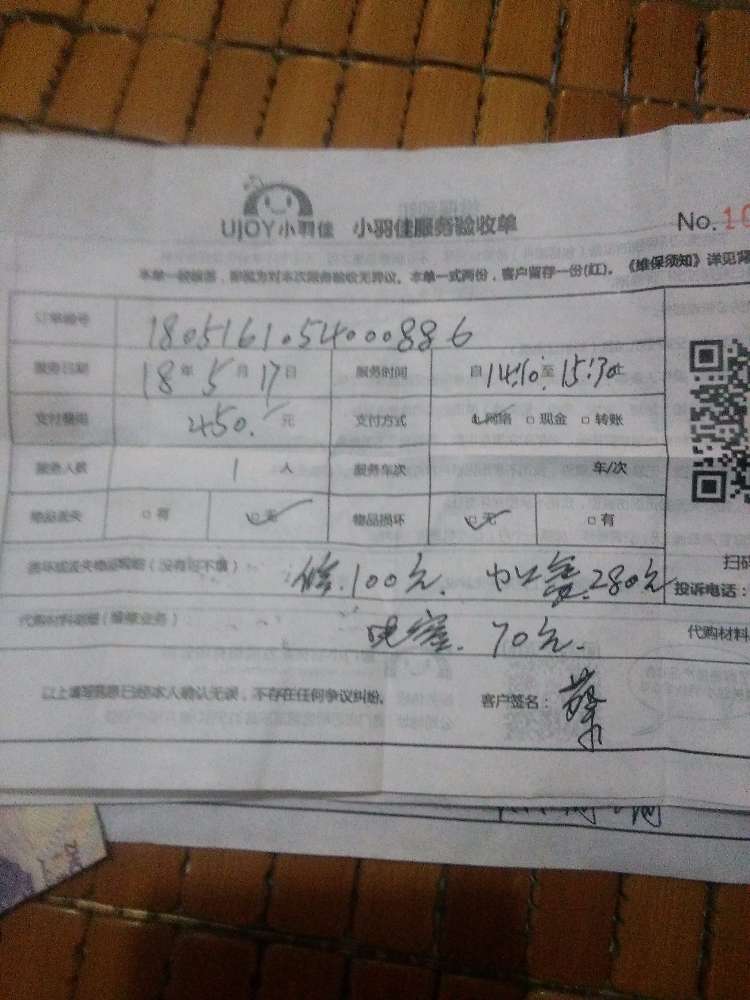 UJOY小羽佳 小羽佳服务验收单
No.10
本单一经签署，即视为对本次服务验收无异议。本单一式两份，客户留存一份(红)。《维保须知》详见背
订单编号 1805161054000886
服务日期 18年5月17日 服务时间 自14:10至15:30止
支付费用 450.元 支付方式 网络 现金 转账
服务人数 1人 服务车次 车/次
物品丢失 有 无 物品损坏 无 有
扫码
损坏或丢失物品明细（没有可不填） 修.100元. 加氟.280元
投诉电话：
代购材料明细（维修业务） 电容. 70元.
代购材料
以上填写信息已经本人确认无误，不存在任何争议纠纷。 客户签名：蔡